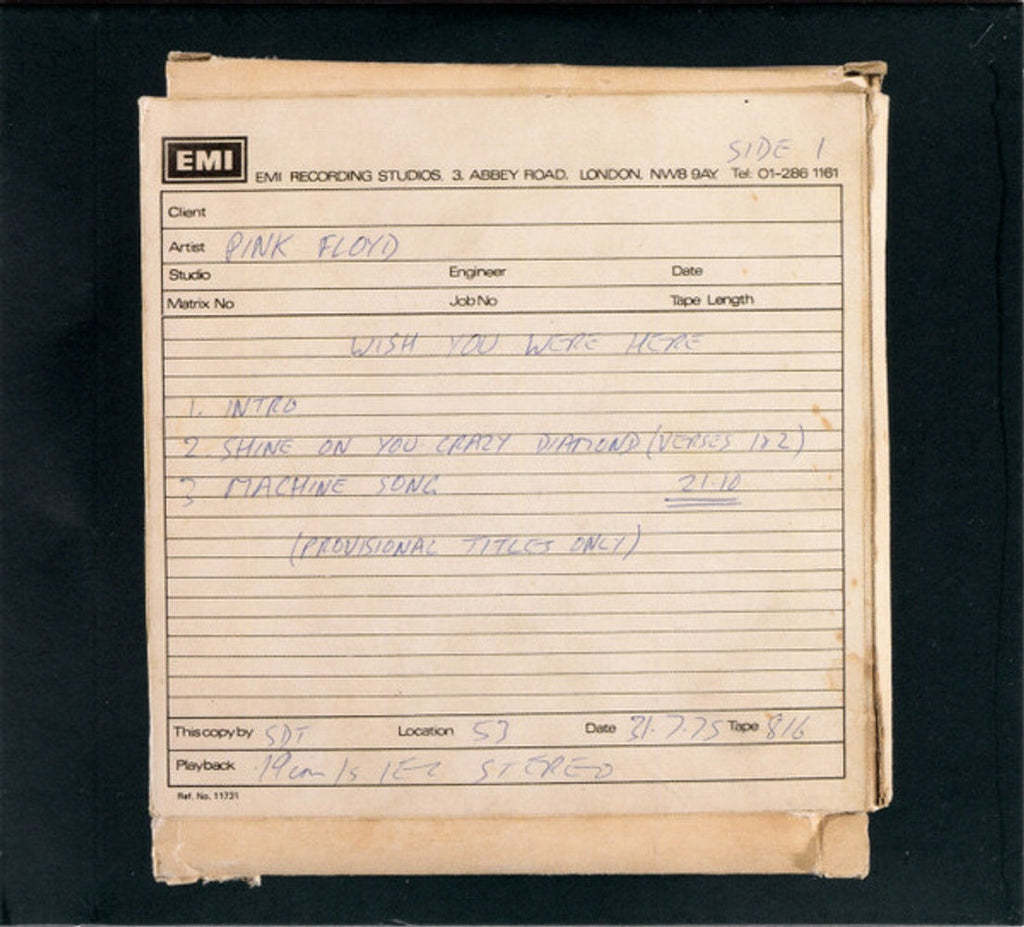 SIDE 1
EMI
EMI RECORDING STUDIOS, 3, ABBEY ROAD, LONDON, NW8 9AY Tel: 01-286 1161
Client
Artist PINK FLOYD
Studio Engineer Date
Matrix No Job No Tape Length
WISH YOU WERE HERE
1. INTRO
2 SHINE ON YOU CRAZY DIAMOND (VERSES 1&2)
3 MACHINE SONG 21.10
(PROVISIONAL TITLES ONLY)
This copy by SDT Location 53 Date 31.7.75 Tape 816
Playback 19 cm/s IEC STEREO
Ref. No. 11731